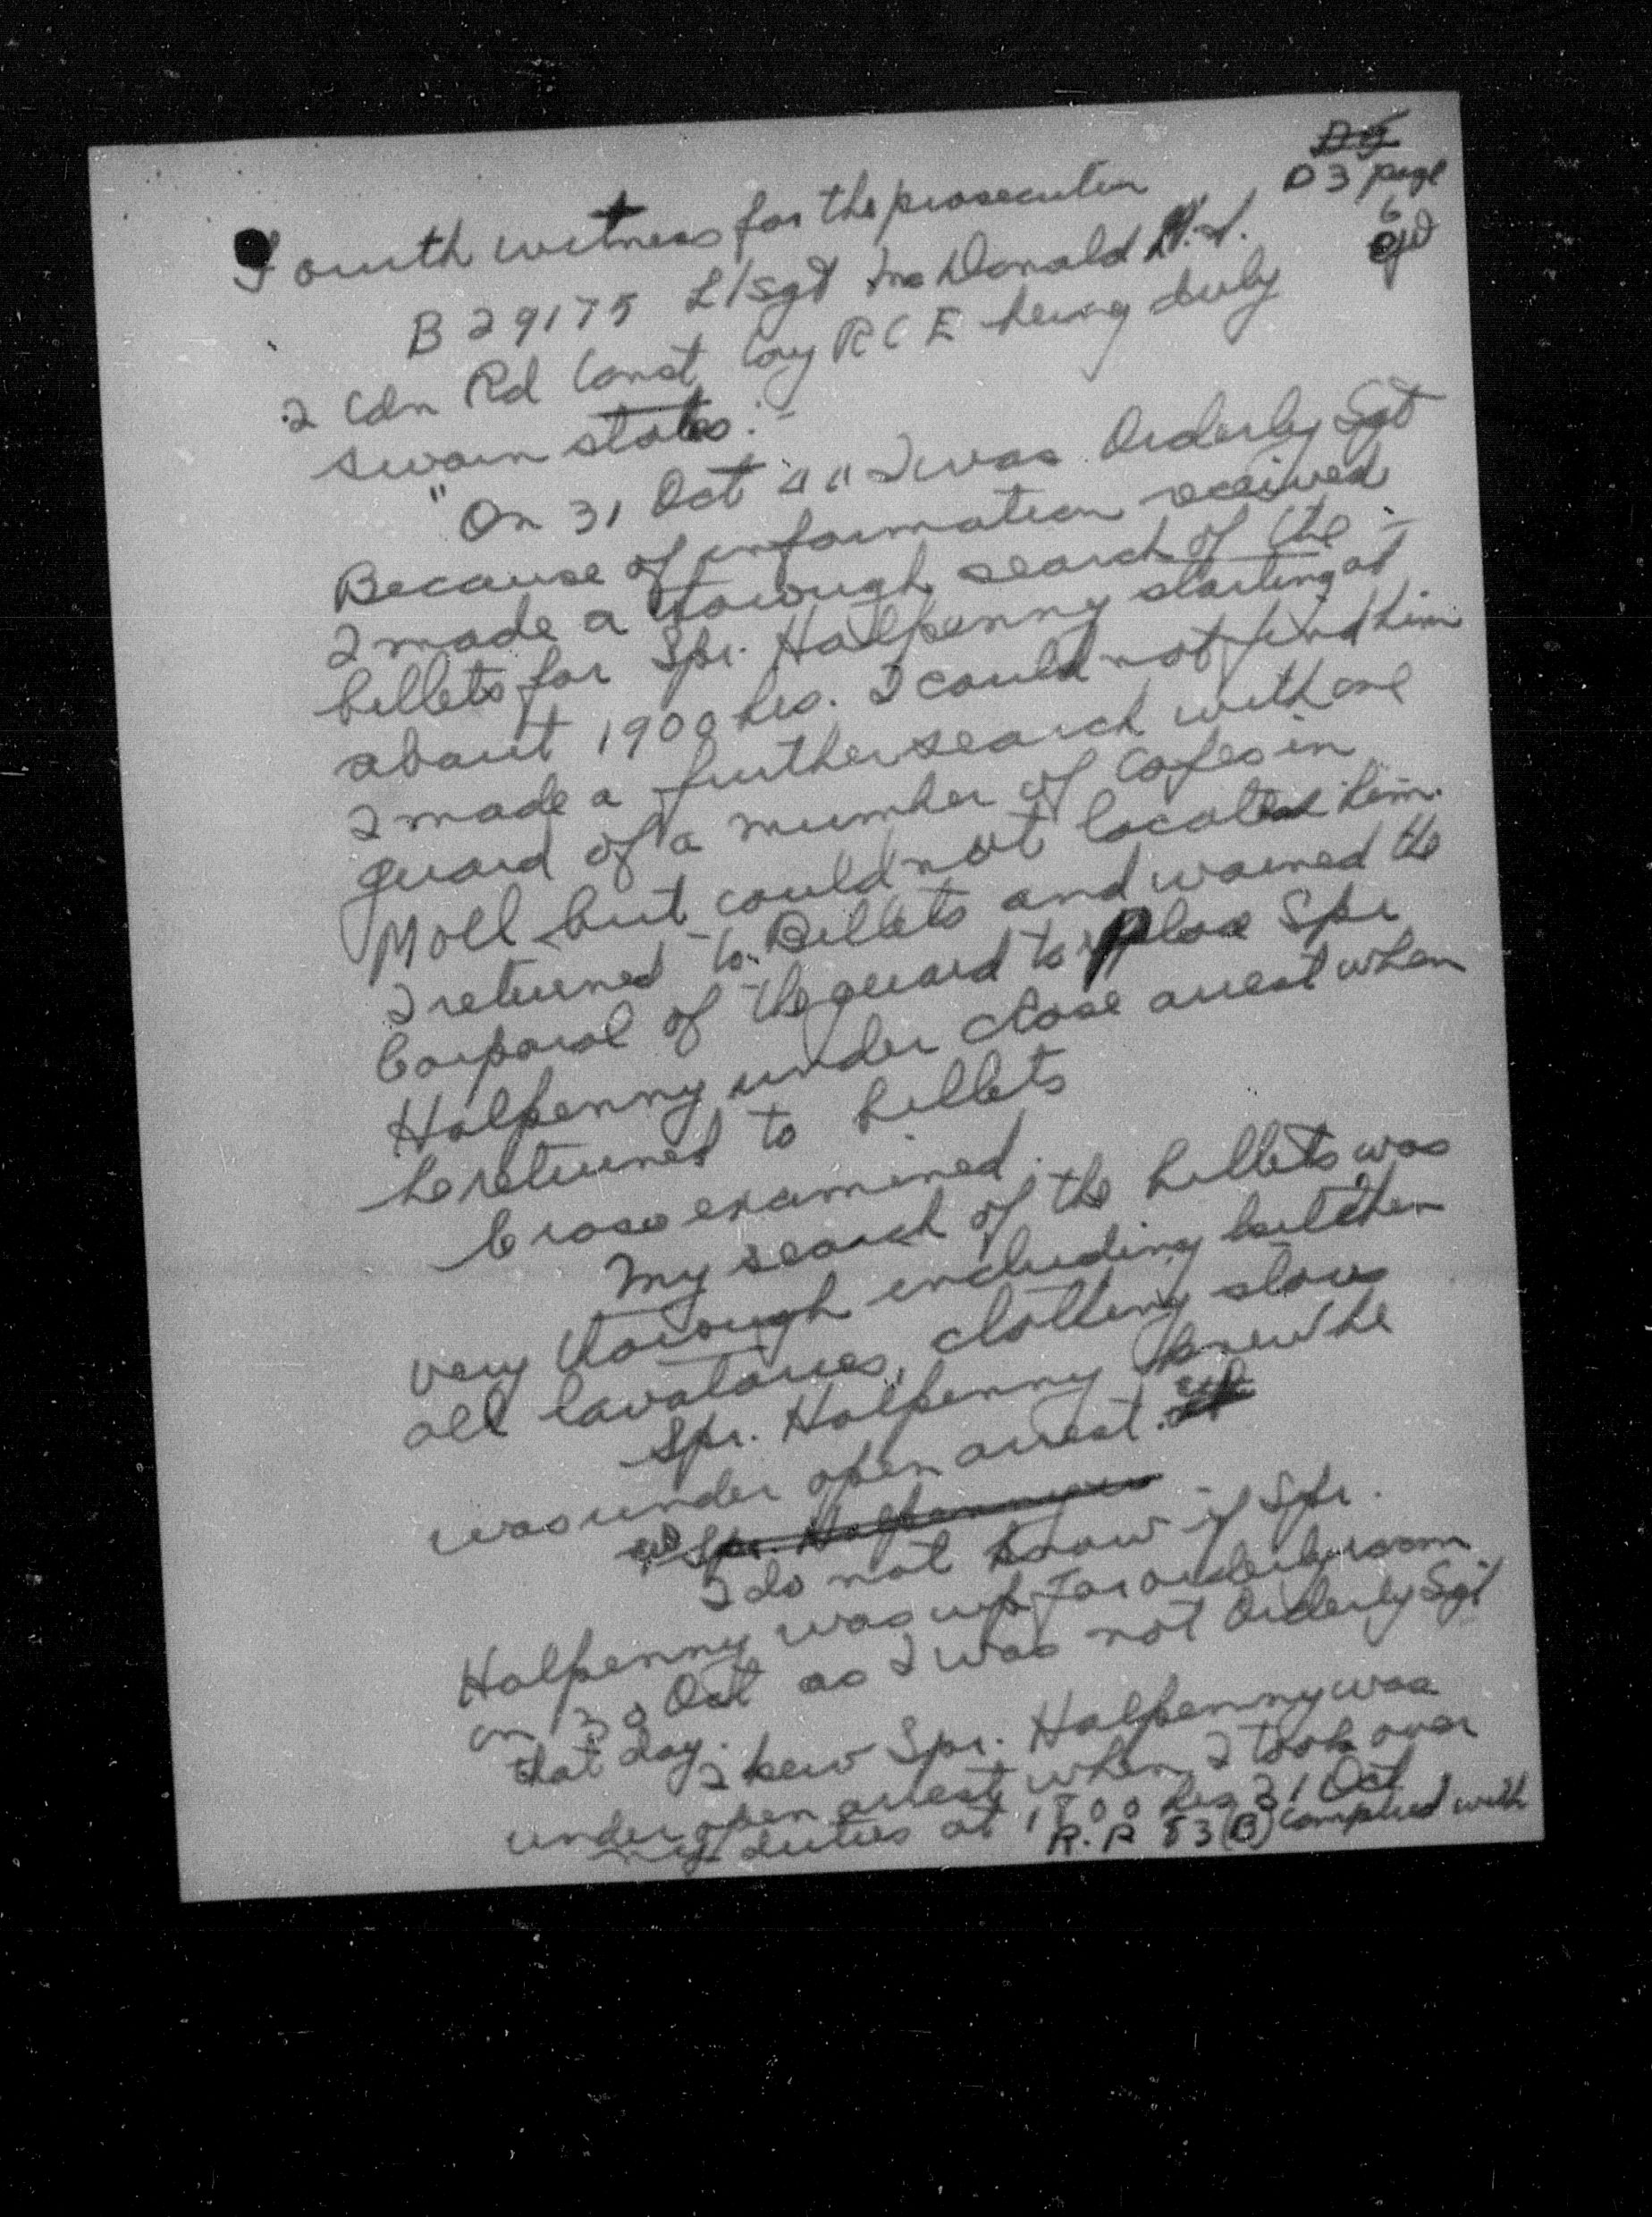 D3 page
6
Fourth witness for the prosecution
B29175 L/Sgt McDonald
2 Cdn Rd Const Coy RCE being duly
sworn states:-
"On 31 Oct 44 I was Orderly Sgt
Because of information received
I made a thorough search of the
billets for Spr. Halpenny starting at
about 1900 hrs. I could not find him
I made a further search with one
guard of a number of Cafes in
Moll but could not located him.
I returned to Billets and warned the
Corporal of the guard to place Spr
Halpenny under close arrest when
he returned to billets
Cross examined.
My search of the billets was
very thorough including kitchen
all lavatories, clothing stores
Spr. Halpenny knew he
was under open arrest.
Spr. Halpenny
I do not know if Spr.
Halpenny was up for orderly room
on 30 Oct as I was not Orderly Sgt
that day.
I kew Spr. Halpenny was
under open arrest when I took over
my duties at 1800 hrs 31 Oct
R.P 83(B) complied with